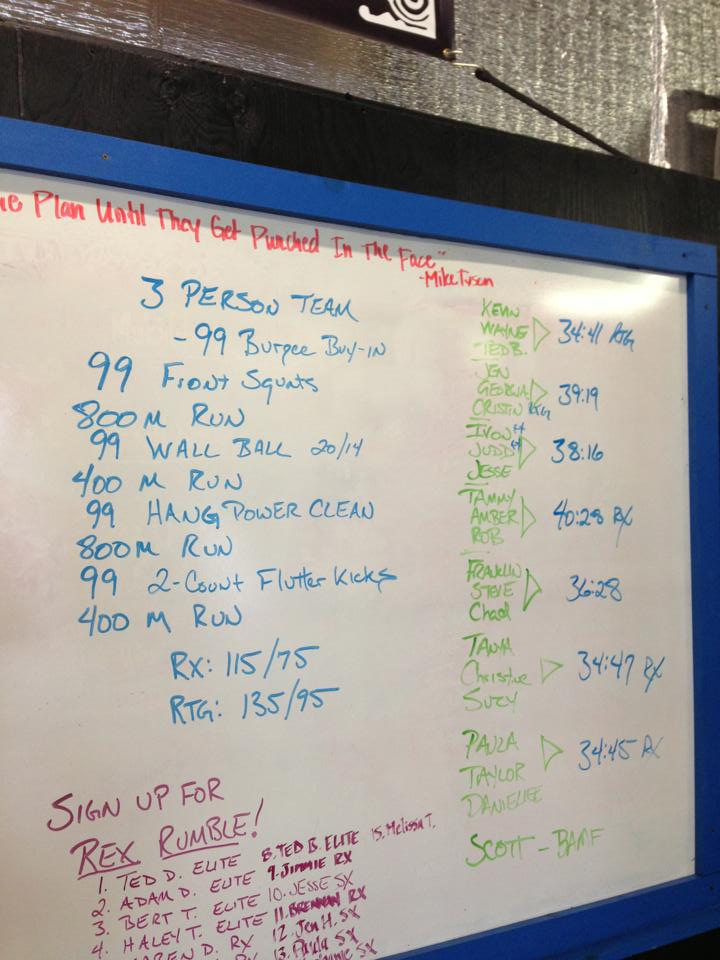 Plan Until They Get Punched In The Face"
-Mike Tyson
3 PERSON TEAM
-99 Burpee Buy-in
99 Front Squats
800 M RUN
99 WALL BALL 20/14
400 M RUN
99 HANG POWER CLEAN
800 M RUN
99 2-Count Flutter Kicks
400 M RUN
RX: 115/75
RTG: 135/95
KEVIN
WAYNE 34:41 RTG
TED B.
JEN
GEORGIA 39:19
CRISTIN RTG
IVON
JUDD 38:16
JESSE
TAMMY
AMBER 40:28 RX
ROB
FRANKLIN
STEVE 36:28
Chad
TANYA
Christine 34:47 RX
SUZY
PAULA
TAYLOR 34:45 RX
DANIELLE
SCOTT - BAMF
SIGN UP FOR
REX RUMBLE!
1. TED D. ELITE
2. ADAM D. ELITE
3. BERT T. ELITE
4. HALEY T. ELITE
D. RX
8. TED B. ELITE
9. Jimmie RX
10. JESSE SX
11. BRENNAN RX
12. Jen H. SX
13. Paula SX
SX
15. Melissa T.